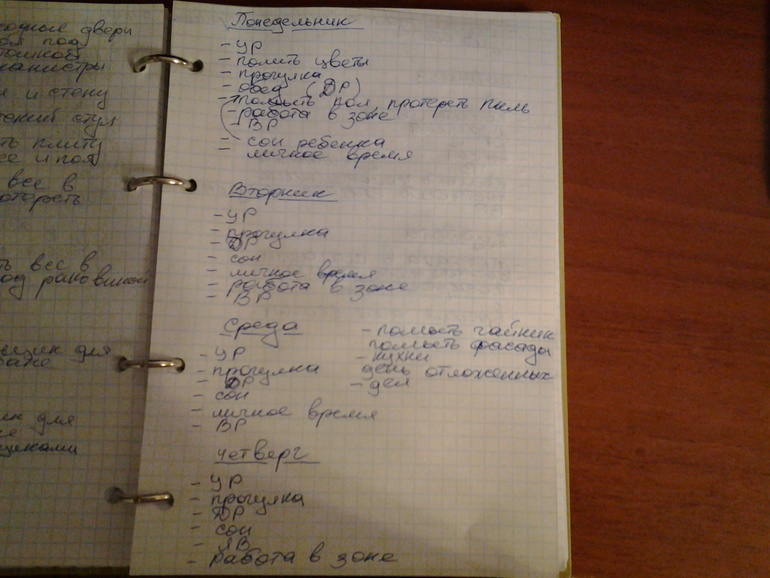 ходные двери
под
канистры
и стену
ский стул
ть плиту
се и пол
все в
отереть
ть все в
од раковиной
щик для
для
щиками
Понедельник
- УР
- полить цветы
- прогулка
- обед (ДР)
- помыть пол, протереть пыль
- работа в зоне
- ВР
- сон ребенка
- личное время
Вторник
- УР
- прогулка
- ДР
- сон
- личное время
- работа в зоне
- ВР
Среда
- УР
- прогулка
- ДР
- сон
- личное время
- ВР
- помыть чайник
помыть фасада
- кухни
день отложенных
- дел
Четверг
- УР
- прогулка
- ДР
- сон
- ЛВ
- работа в зоне